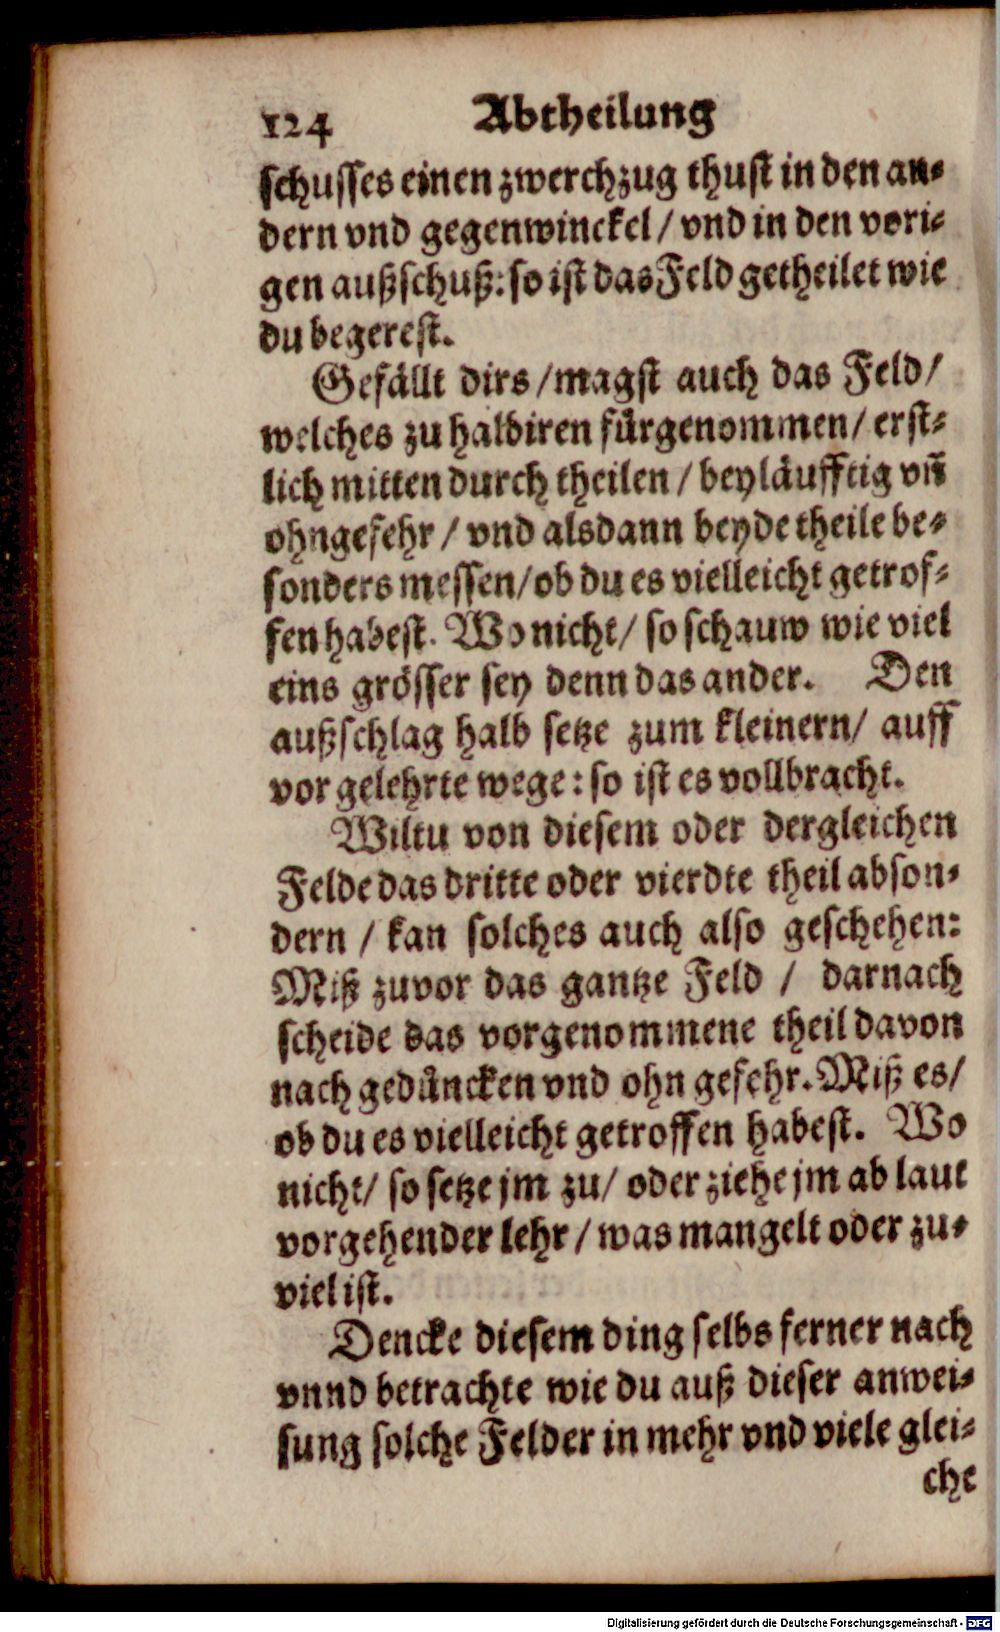 124 Abtheilung
schusses einen zwerchzug thust in den an-
dern vnd gegenwinckel / vnd in den vori-
gen außschuß: so ist das Feld getheilet wie
du begerest.
Gefällt dirs / magst auch das Feld /
welches zu halbiren fürgenommen / erst-
lich mitten durch theilen / beyläufftig vn̄
ohngefehr / vnd alsdann beyde theile be-
sonders messen / ob du es vielleicht getrof-
fen habest. Wo nicht / so schauw wie viel
eins grösser sey denn das ander. Den
außschlag halb setze zum kleinern / auff
vor gelehrte wege: so ist es vollbracht.
Wiltu von diesem oder dergleichen
Felde das dritte oder vierdte theil abson-
dern / kan solches auch also geschehen:
Miß zuvor das gantze Feld / darnach
scheide das vorgenommene theil davon
nach gedüncken vnd ohn gefehr. Miß es /
ob du es vielleicht getroffen habest. Wo
nicht / so setze jm zu / oder ziehe jm ab laut
vorgehender lehr / was mangelt oder zu-
viel ist.
Dencke diesem ding selbs ferner nach
vnnd betrachte wie du auß dieser anwei-
sung solche Felder in mehr vnd viele glei-
che
Digitalisierung gefördert durch die Deutsche Forschungsgemeinschaft - DFG